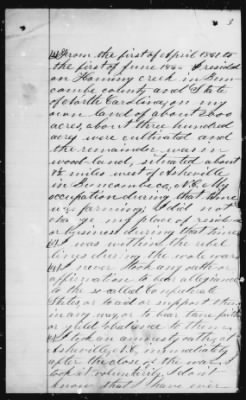 3
from the first of April 1861 to
the first of June 1865 I resided
on Hominy creek in Bun-
combe county and State
of North Carolina, on my
own land of about 2600
acres, about three hundred
acres were cultivated and
the remainder was in
wood-land, situated about
miles west of Asheville
in Buncombe co, N.C. My
occupation during that time
was farming; I did not
change my place of residence
or business during that time
I was within the rebel
lines during the whole war
I never took any oath or
affirmation to bear allegiance
to the so-called Confederate
States, or to aid or support them
in any way, or to bear true faith
or yield obedience to them.
I took an amnesty oath, at
Asheville, N.C., immediately
after the close of the war. I
took it voluntarily. I don't
know that I have ever